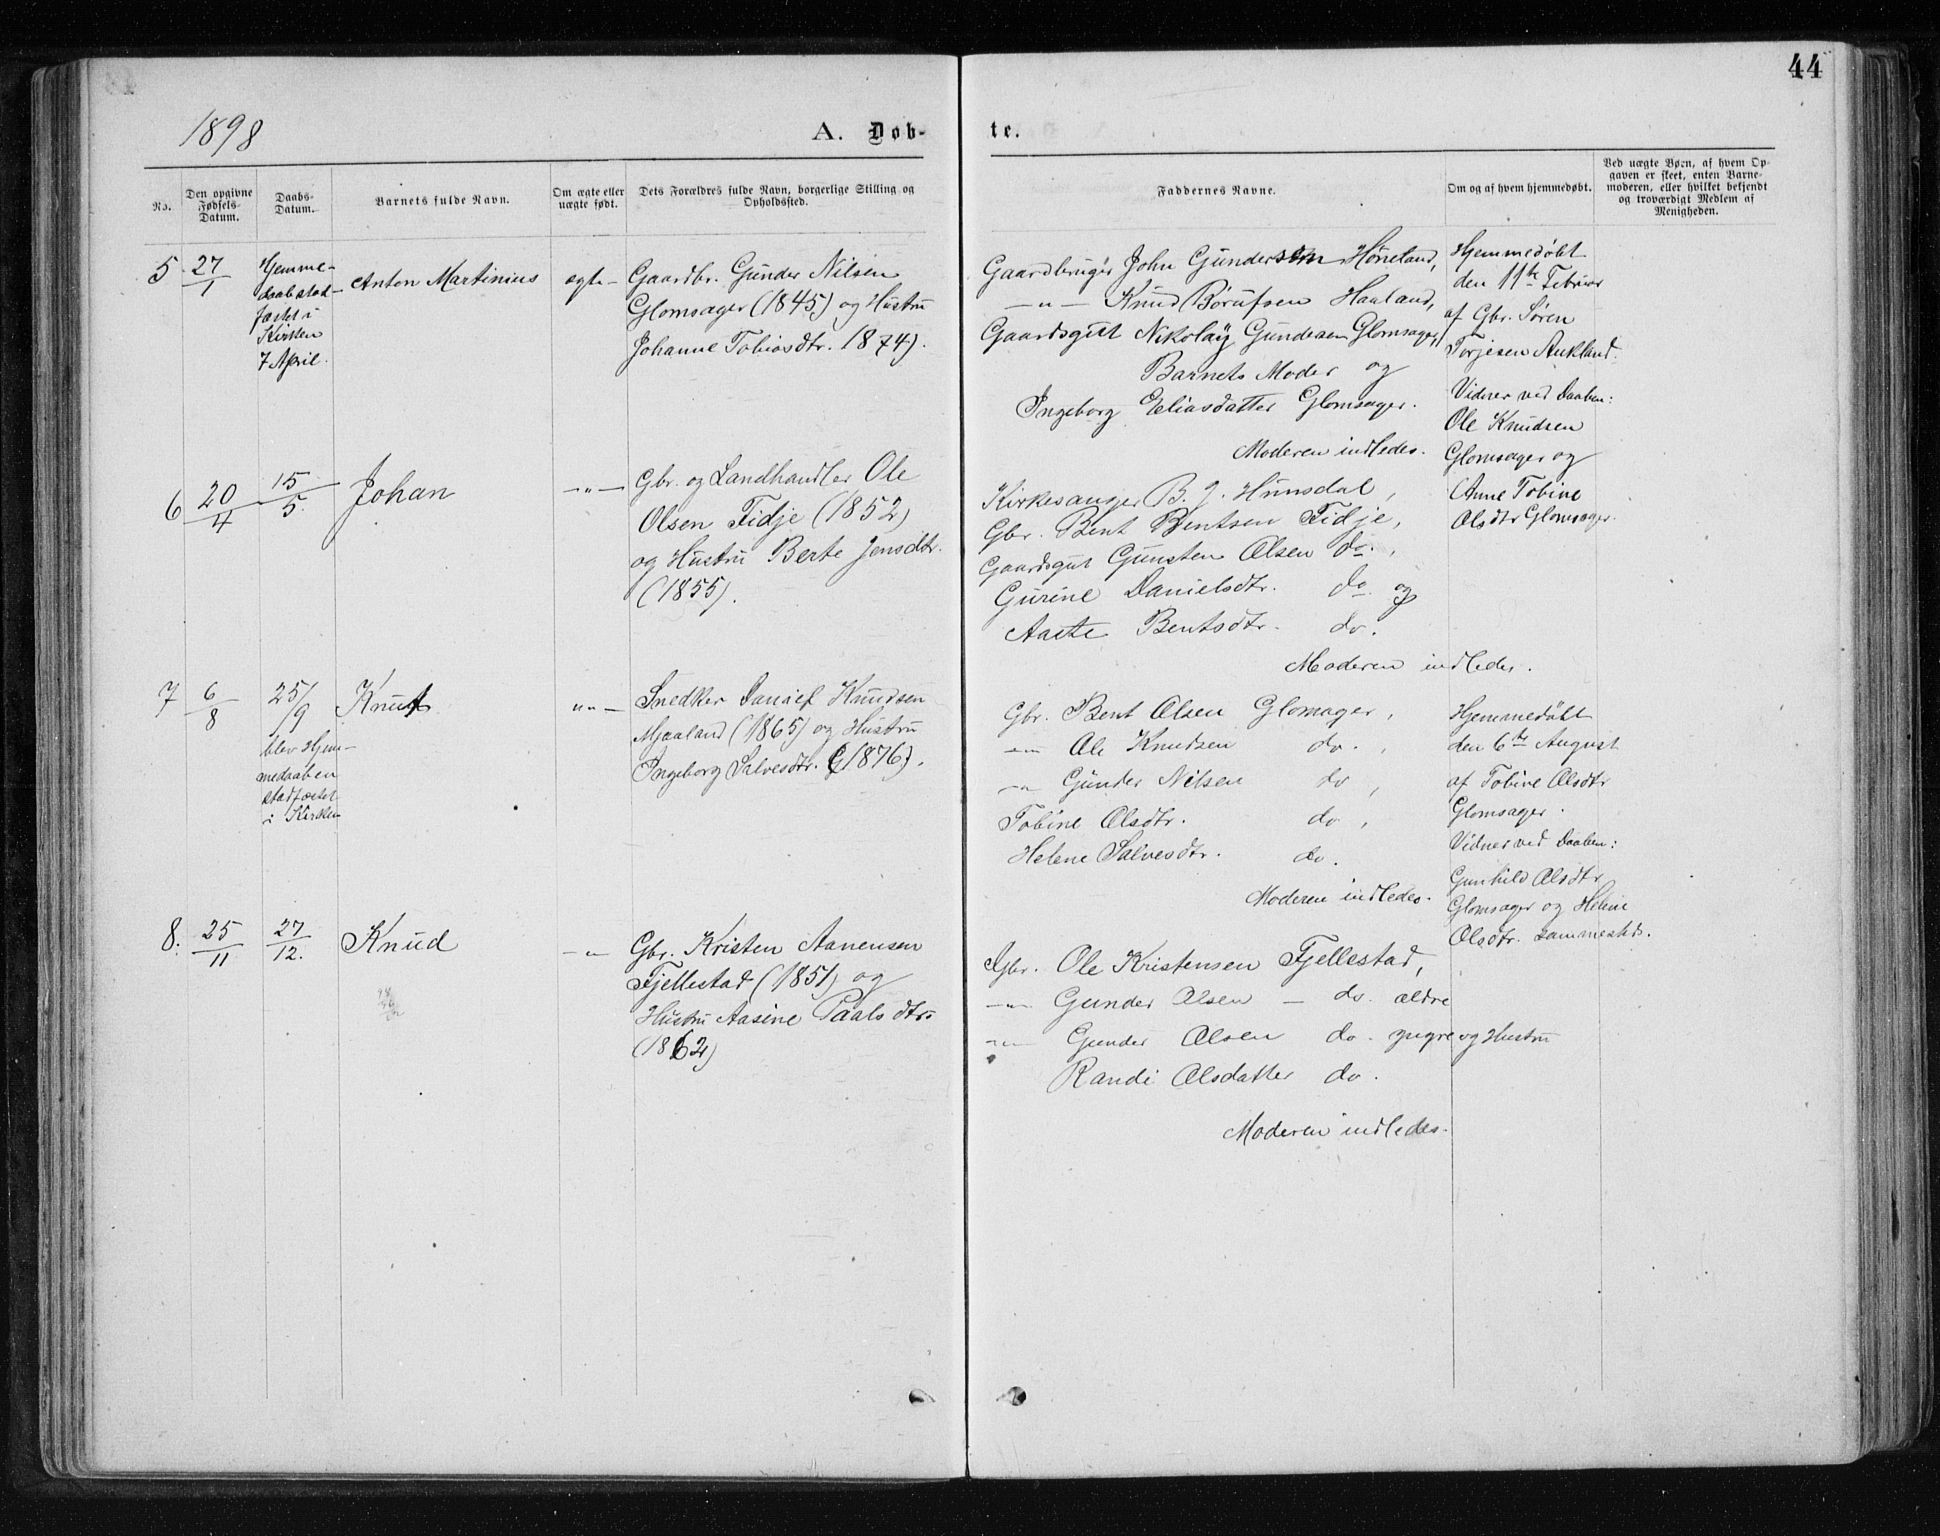 44
1898
A. Døb-
te.
No.
Den opgivne
Fødsels-
Datum.
Daabs-
Datum.
Barnets fulde Navn.
Om ægte eller
uægte født.
Dets Forældres fulde Navn, borgerlige Stilling og
Opholdssted.
Faddernes Navne.
Om og af hvem hjemmedøbt.
Ved uægte Børn, af hvem Op-
gaven er skeet, enten Barne-
moderen, eller hvilket bekjendt
og troværdigt Medlem af
Menigheden.
5
27/1
Hjemme-
daab stad-
fæstet i
Kirken
7 April.
Anton Martinius
egte
Gaardbr. Gunder Nilsen
Glomsager (1845) og Hustru
Johanne Tobiasdtr. 1874).
Gaardbruger John Gundersen Høneland,
—"— Knud Børufsen Haaland,
Gaardsgut Nikolay Gundersen Glomsager,
Barnets Moder og
Ingeborg Eliasdatter Glomsager.
Moderen indledes.
Hjemmedøbt
den 11te Februar
af Gbr. Søren
Torjesen Aukland.
Vidner ved Daaben:
Ole Knudsen
Glomsager og
Anne Tobine
Olsdtr Glomsager.
6
20/4
15/5.
Johan
—"—
Gbr. og Landhandler Ole
Olsen Fidje (1852)
og Hustru Berte Jensdtr.
(1855).
Kirkesanger B. J. Hunsdal,
Gbr. Bent Bentsen Fidje,
Gaardsgut Gunsten Olsen do.,
Gurine Danielsdtr. do og
Aaste Bentsdtr. do.
Moderen indledes.
7
6/8
25/9
blev Hjem-
medaaben
stadfæstet
i Kirken
Knut
""—
Snedker Daniel Knudsen
Mjaaland (1865) og Hustru
Ingeborg Salvesdtr. (1876).
Gbr. Bent Olsen Glomsager,
—"— Ole Knudsen do.,
—"— Gunder Nilsen do,
Tobine Olsdtr. do,
Helene Salvesdtr. do.
Moderen indledes.
Hjemmedøbt
den 6te August
af Tobine Olsdtr
Glomsager.
Vidner ved Daaben:
Gunhild Olsdtr
Glomsager og Helene
Olsdtr. sammesteds.
8.
25/11
27/12.
Knud
—"
Gbr. Kristen Aanensen
Fjellestad (1851) og
Hustru Aasine Paalsdtr.
(1862)
Gbr. Ole Kristensen Fjellestad,
—"— Gunder Olsen — do. ældre
—"— Gunder Olsen do. yngre og Hustru
Randi Olsdatter do.
Moderen indledes.